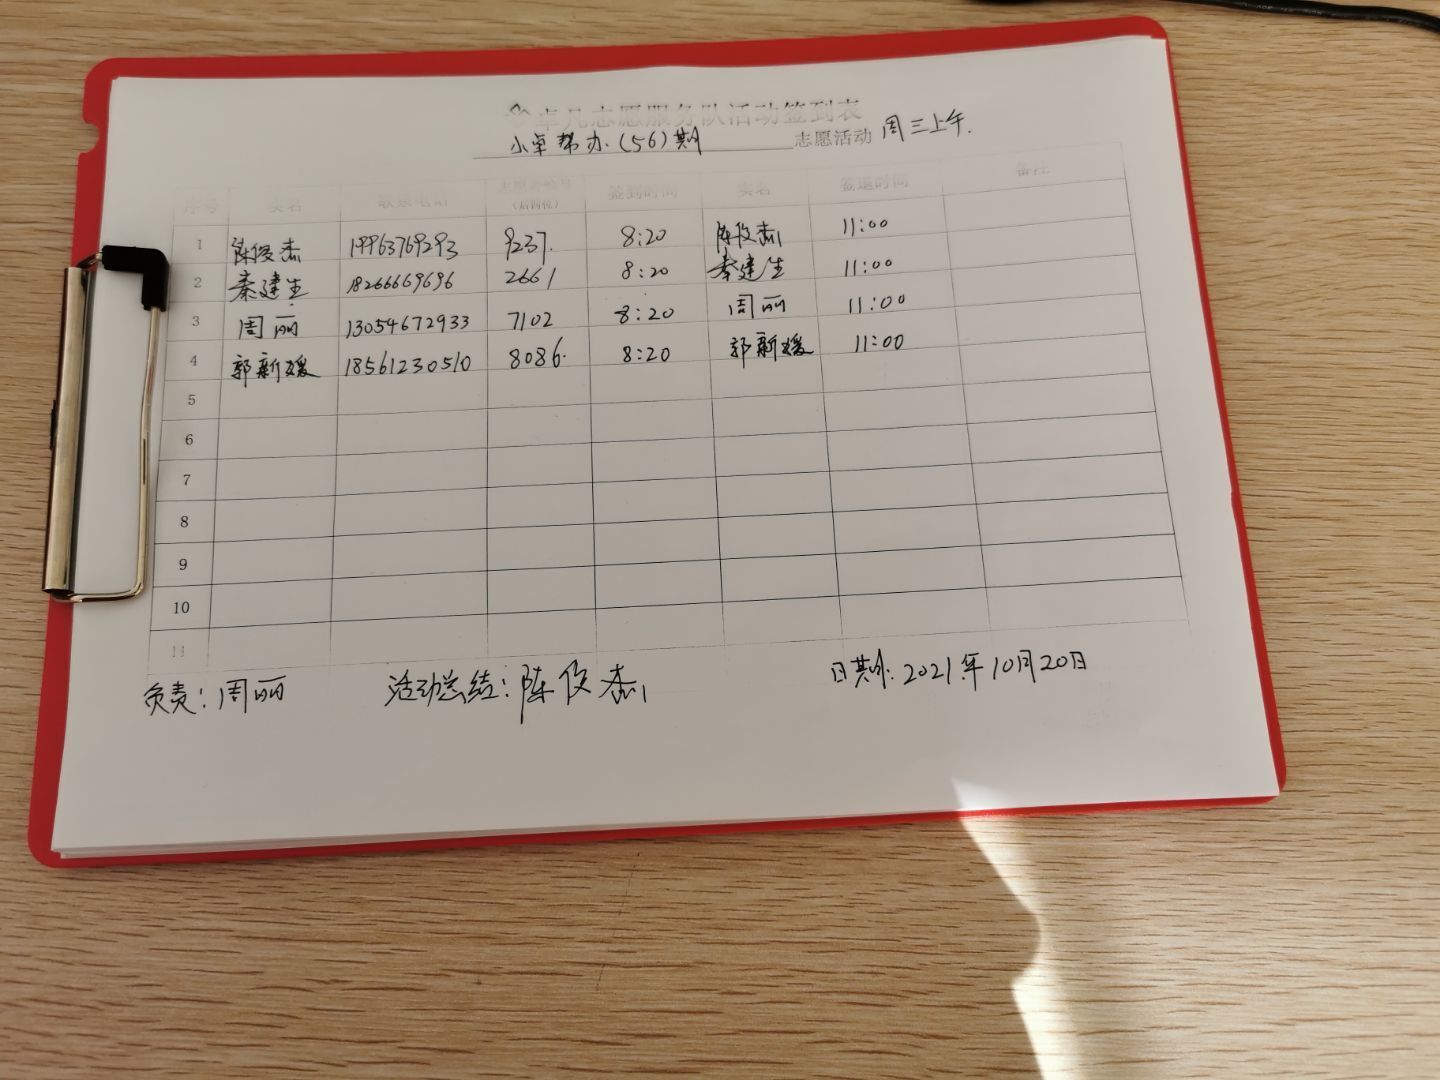 卓凡志愿服务队活动签到表
小卓帮办.(56)期 志愿活动 周三上午.
序号 实名 联系电话 志愿者编号（后四位） 签到时间 实名 签退时间 备注
1 陈俊杰 19963769293 9237. 8:20 陈俊杰 11:00
2 秦建生 18266669696 2661 8:20 秦建生 11:00
3 周丽 13054672933 7102 8:20 周丽 11:00
4 郭新媛 18561230510 8086. 8:20 郭新媛 11:00
5
6
7
8
9
10
11
负责:周丽 活动总结:陈俊杰 日期:2021年10月20日